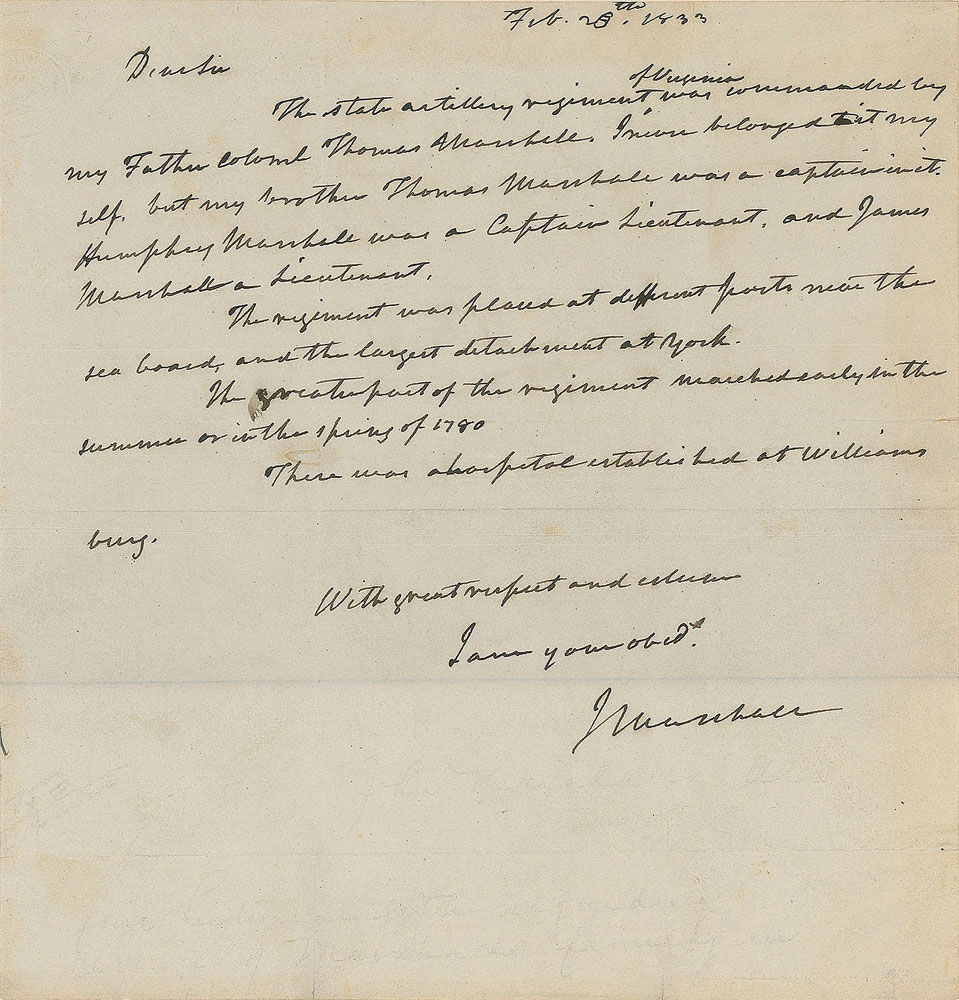 Feb. 28th. 1833
Dear Sir
of Virginia
The state artillery regiment was commanded by
my Father Colonel Thomas Marshall. I never belonged to it my
self. but my brother Thomas Marshall was a captain in it.
Humphrey Marshall was a Captain Lieutenant. and James
Marshall a Lieutenant.
The regiment was placed at different posts near the
sea board, and the largest detachment at York.
The greater part of the regiment marched early in the
summer or in the spring of 1780
There was a hospital established at Williams
burg.
With great respect and esteem
I am your obedt.
J Marshall